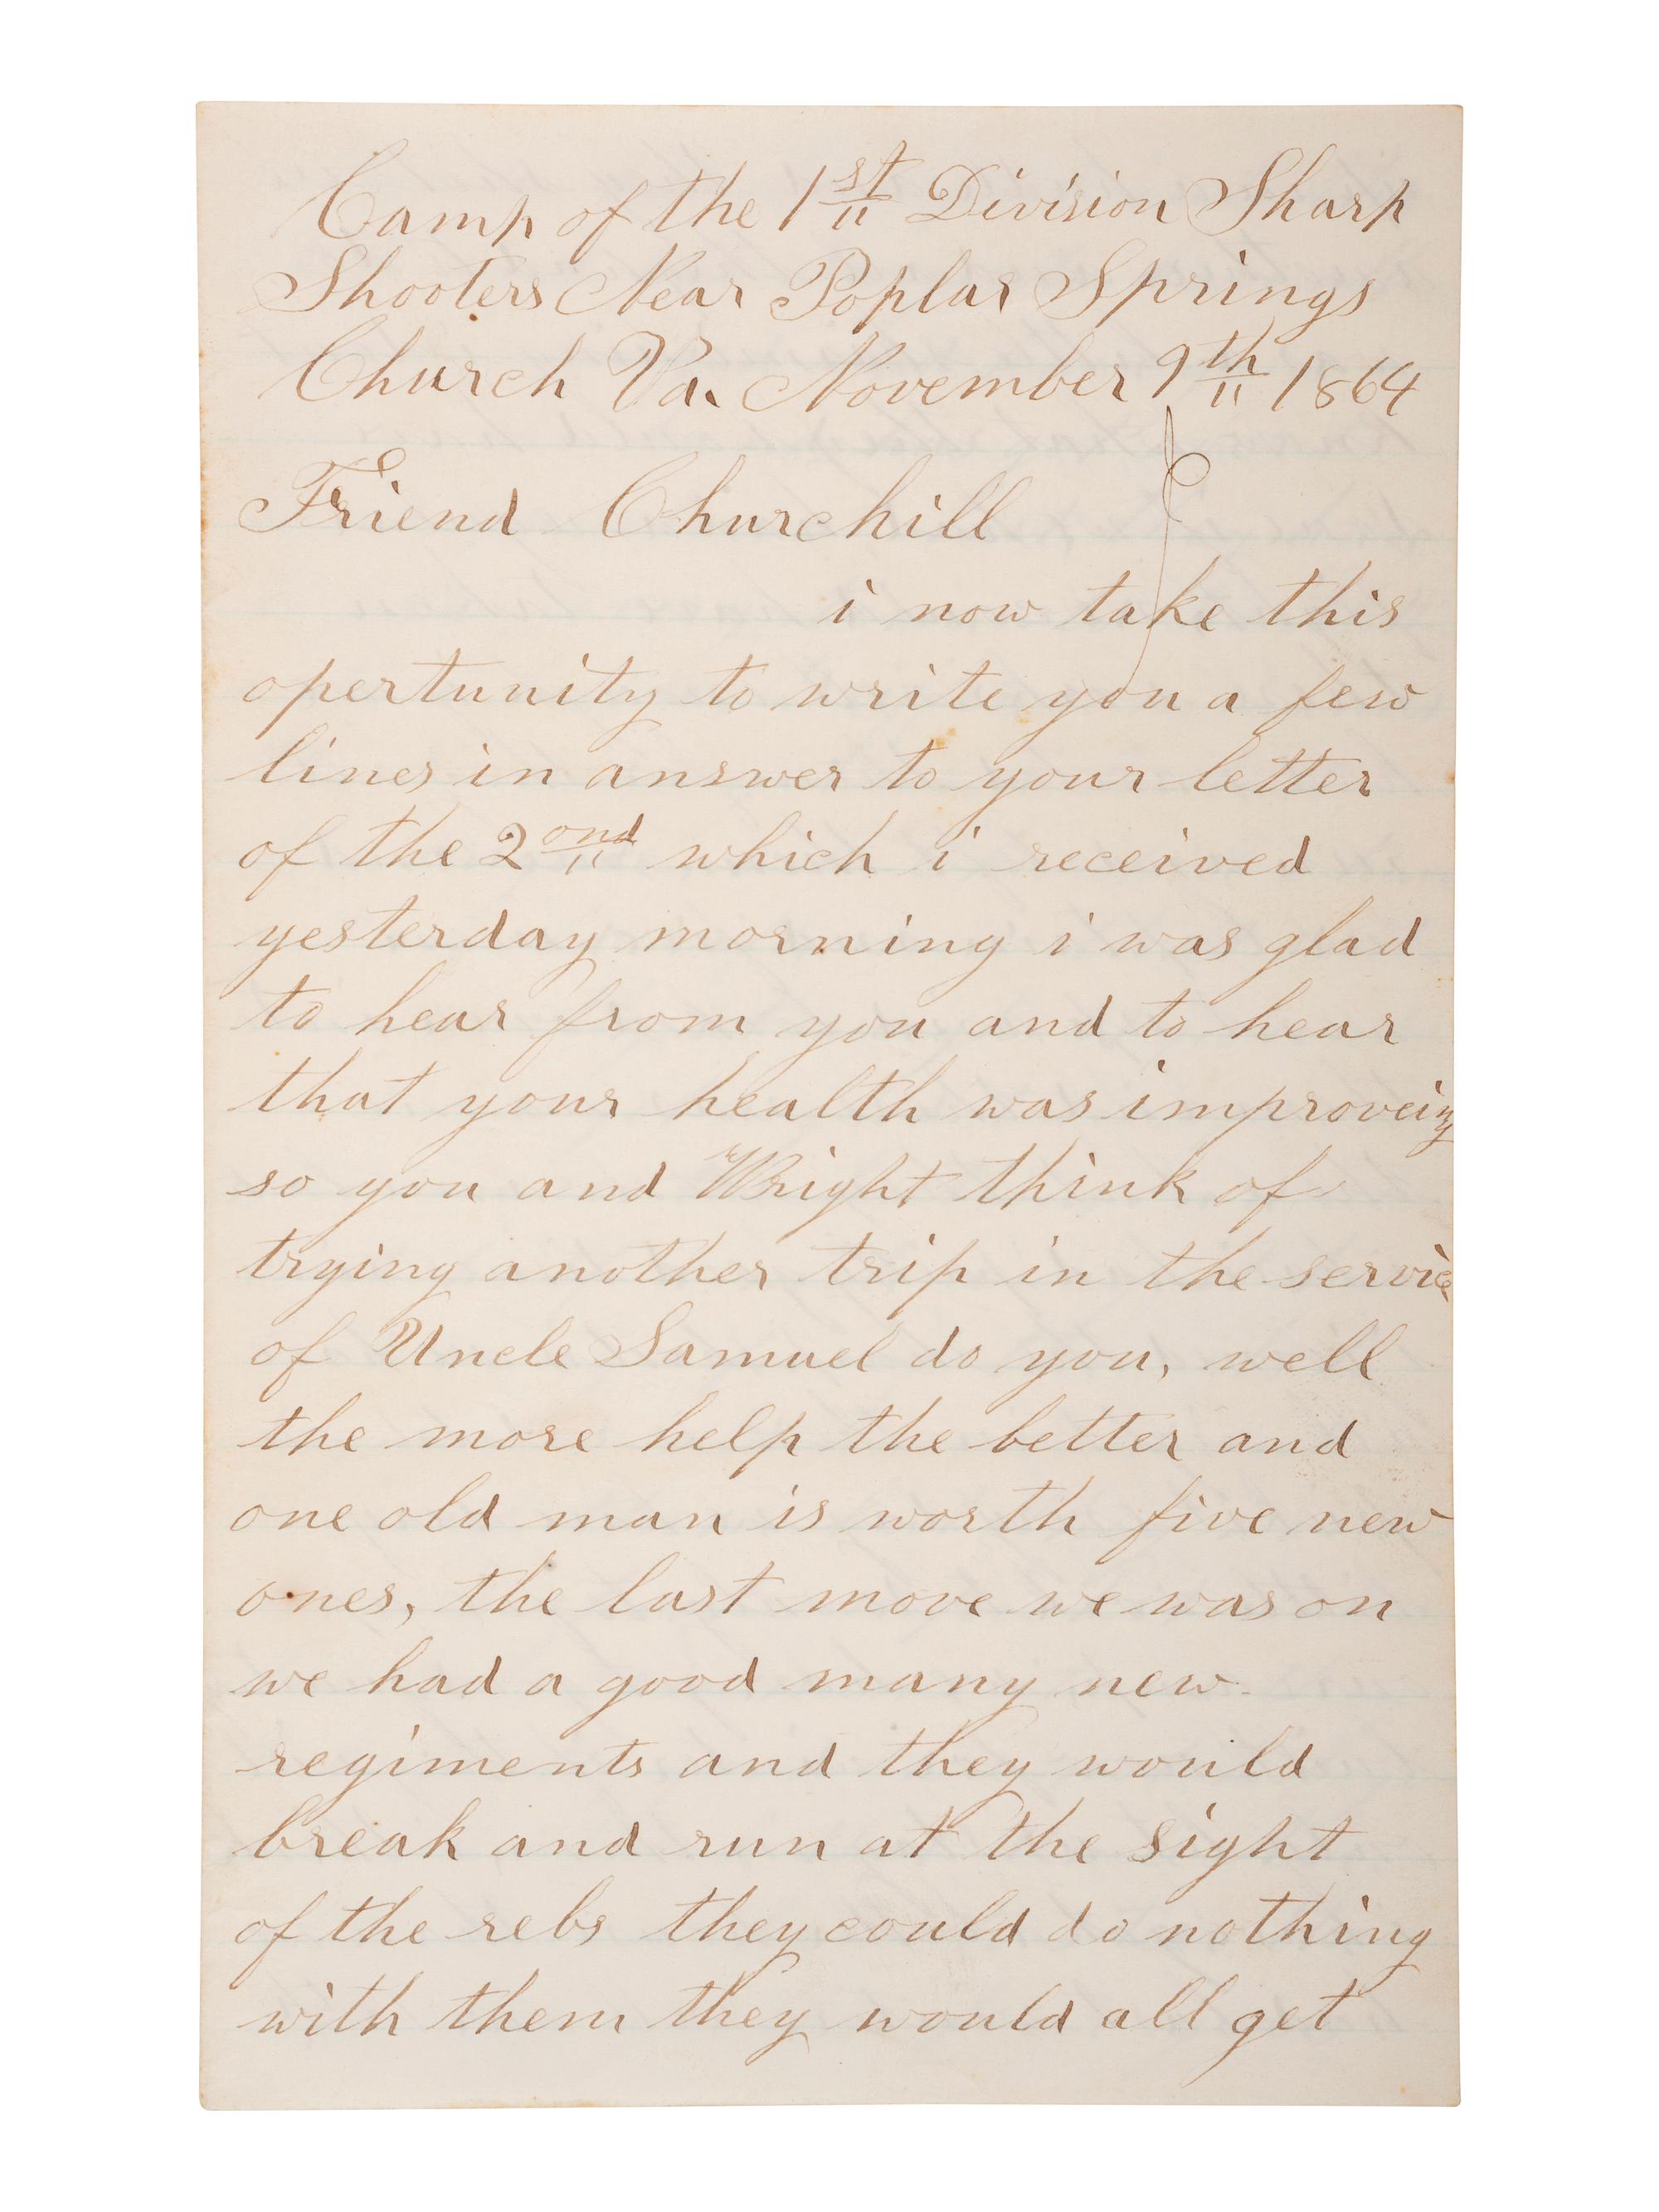 Camp of the 1st Division Sharp
Shooters Near Poplar Springs
Church Va. November 9th 1864
Friend Churchill
i now take this
opertunity to write you a few
lines in answer to your letter
of the 2ond which i received
yesterday morning i was glad
to hear from you and to hear
that your health was improveing
so you and Wright think of
trying another trip in the service
of Uncle Samuel do you, well
the more help the better and
one old man is worth five new
ones, the last move we was on
we had a good many new
regiments and they would
break and run at the sight
of the rebs they could do nothing
with them they would all get